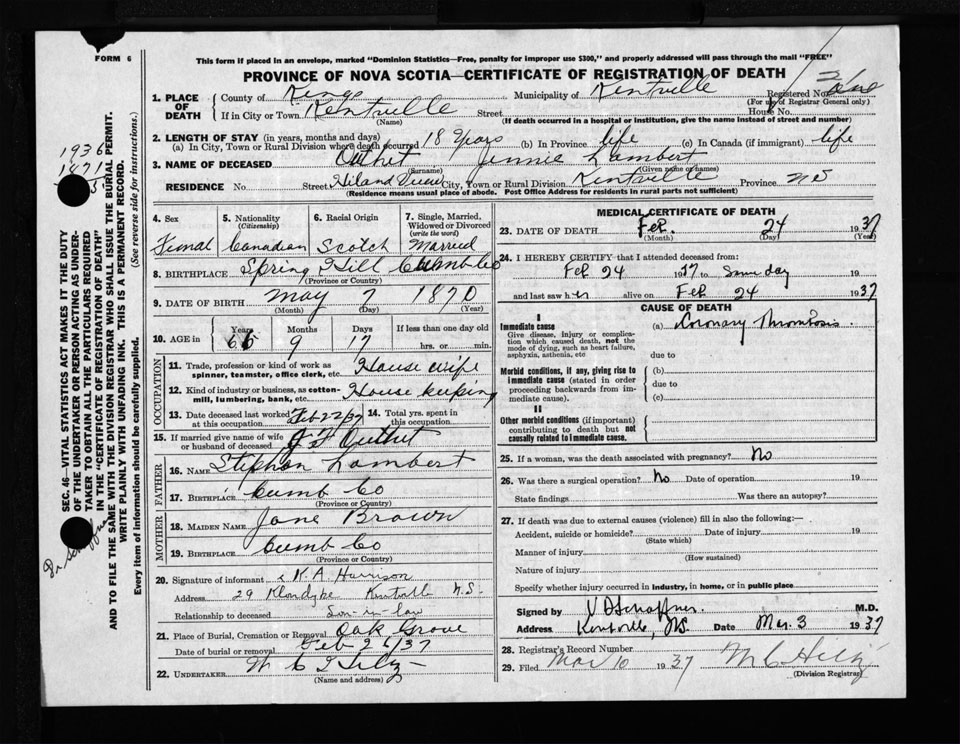 FORM 6
This form if placed in an envelope, marked "Dominion Statistics—Free, penalty for improper use $300," and properly addressed will pass through the mail "FREE"
PROVINCE OF NOVA SCOTIA—CERTIFICATE OF REGISTRATION OF DEATH
1. PLACE OF DEATH
County of Kings
Municipality of Kentville
Registered No.
(For use of Registrar General only)
If in City or Town Kentville
(Name)
Street
House No.
(If death occurred in a hospital or institution, give the name instead of street and number)
2. LENGTH OF STAY (in years, months and days)
(a) In City, Town or Rural Division where death occurred 18 years (b) In Province life (c) In Canada (if immigrant) life
3. NAME OF DECEASED Outhet Jennie Lambert
(Surname) (Given name or names)
RESIDENCE No. Street Hiland View City, Town or Rural Division Kentville Province NS
(Residence means usual place of abode. Post Office Address for residents in rural parts not sufficient)
4. Sex
Femal
5. Nationality
(Citizenship)
Canadian
6. Racial Origin
Scotch
7. Single, Married, Widowed or Divorced
(write the word)
Married
8. BIRTHPLACE Spring Hill Cumb Co
(Province or County)
9. DATE OF BIRTH May 7 1870
(Month) (Day) (Year)
10. AGE in
Years Months Days If less than one day old
66 9 17 hrs. or min.
OCCUPATION
11. Trade, profession or kind of work as spinner, teamster, office clerk, etc. House wife
12. Kind of industry or business, as cotton-mill, lumbering, bank, etc. House keeping
13. Date deceased last worked at this occupation Feb 22/37
14. Total yrs. spent in this occupation
15. If married give name of wife or husband of deceased Outhet
FATHER
16. NAME Stephen Lambert
17. BIRTHPLACE Cumb Co
(Province or County)
MOTHER
18. MAIDEN NAME Jane Brown
19. BIRTHPLACE Cumb Co
(Province or Country)
20. Signature of informant N. A. Harrison
Address 29 Klondyke Kentville N.S.
Relationship to deceased Son-in-law
21. Place of Burial, Cremation or Removal Oak Grove
Date of burial or removal Feb 26/37
22. UNDERTAKER W C Hilz
(Name and address)
MEDICAL CERTIFICATE OF DEATH
23. DATE OF DEATH Feb. 24 1937
(Month) (Day) (Year)
24. I HEREBY CERTIFY that I attended deceased from:
Feb 24 1937 to same day 19
and last saw her alive on Feb 24 1937
CAUSE OF DEATH
I
Immediate cause
Give disease, injury or complication which caused death, not the mode of dying, such as heart failure, asphyxia, asthenia, etc
(a) Coronary Thrombosis
due to
Morbid conditions, if any, giving rise to immediate cause (stated in order proceeding backwards from immediate cause).
(b)
due to
(c)
II
Other morbid conditions (if important) contributing to death but not causally related to immediate cause.
25. If a woman, was the death associated with pregnancy? No
26. Was there a surgical operation? No Date of operation 19
State findings Was there an autopsy?
27. If death was due to external causes (violence) fill in also the following:—
Accident, suicide or homicide? Date of injury 19
(State which)
Manner of injury
(How sustained)
Nature of injury
Specify whether injury occurred in industry, in home, or in public place
Signed by V D Schaffner. M.D.
Address Kentville, NS. Date Mar. 3 1937
28. Registrar's Record Number
29. Filed Mar 10 1937 W C Hilz
(Division Registrar)
SEC. 46—VITAL STATISTICS ACT MAKES IT THE DUTY
OF THE UNDERTAKER OR PERSON ACTING AS UNDER-
TAKER TO OBTAIN ALL THE PARTICULARS REQUIRED
IN THE "CERTIFICATE OF REGISTRATION OF DEATH"
AND TO FILE THE SAME WITH THE DIVISION REGISTRAR WHO SHALL ISSUE THE BURIAL PERMIT.
WRITE PLAINLY WITH UNFADING INK. THIS IS A PERMANENT RECORD.
Every item of information should be carefully supplied. (See reverse side for instructions.)